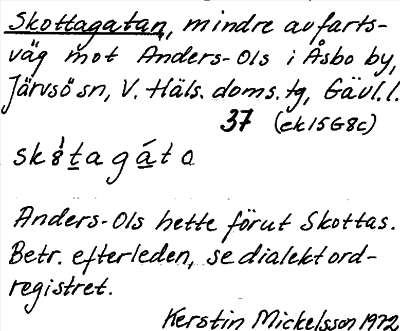 Skottagatan, mindre avfarts-
väg mot Anders-Ols i Åsbo by,
Järvsö sn, V. Häls. doms. tg, Gävl. l.
37 (ek 15G8c)
Anders-Ols hette förut Skottas.
Betr. efterleden, se dialektord-
registret.
Kerstin Mickelsson 1972